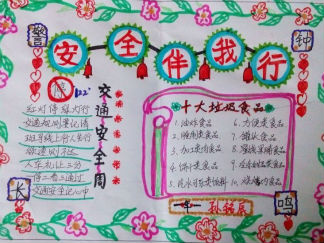 警 钟
安全伴我行
停 122
交通安全周
红灯停 绿灯行
交通规则要记清
一停二看三通过
交通安全记心中
十大垃圾食品
1. 油炸食品
2. 腌制类食品
3. 加工类肉食品
4. 饼干类食品
5. 汽水可乐类饮料
6. 方便类食品
7. 罐头食品
8. 果脯类食品
9. 冷冻甜品类食品
10. 烧烤类食品
长 鸣